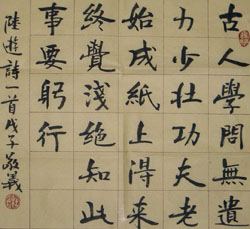 古人學問無遺
力少壯功夫老
始成紙上得来
終覺淺絕知此
事要躬行
陸遊詩一首戊子敬義